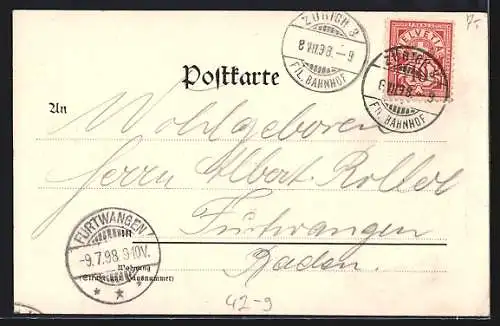 7.-
ZÜRICH 3
8 VII 98.-9
FIL. BAHNHOF
HELVETIA
ZÜRICH 3
8 VII 98.-9
FIL. BAHNHOF
Postkarte
An
Wohlgeboren
Herrn Albert Roller
Furtwangen
in
Baden.
FURTWANGEN
-9.7.98. 9-10V.
Wohnung
(Straße und Hausnummer)
42-9